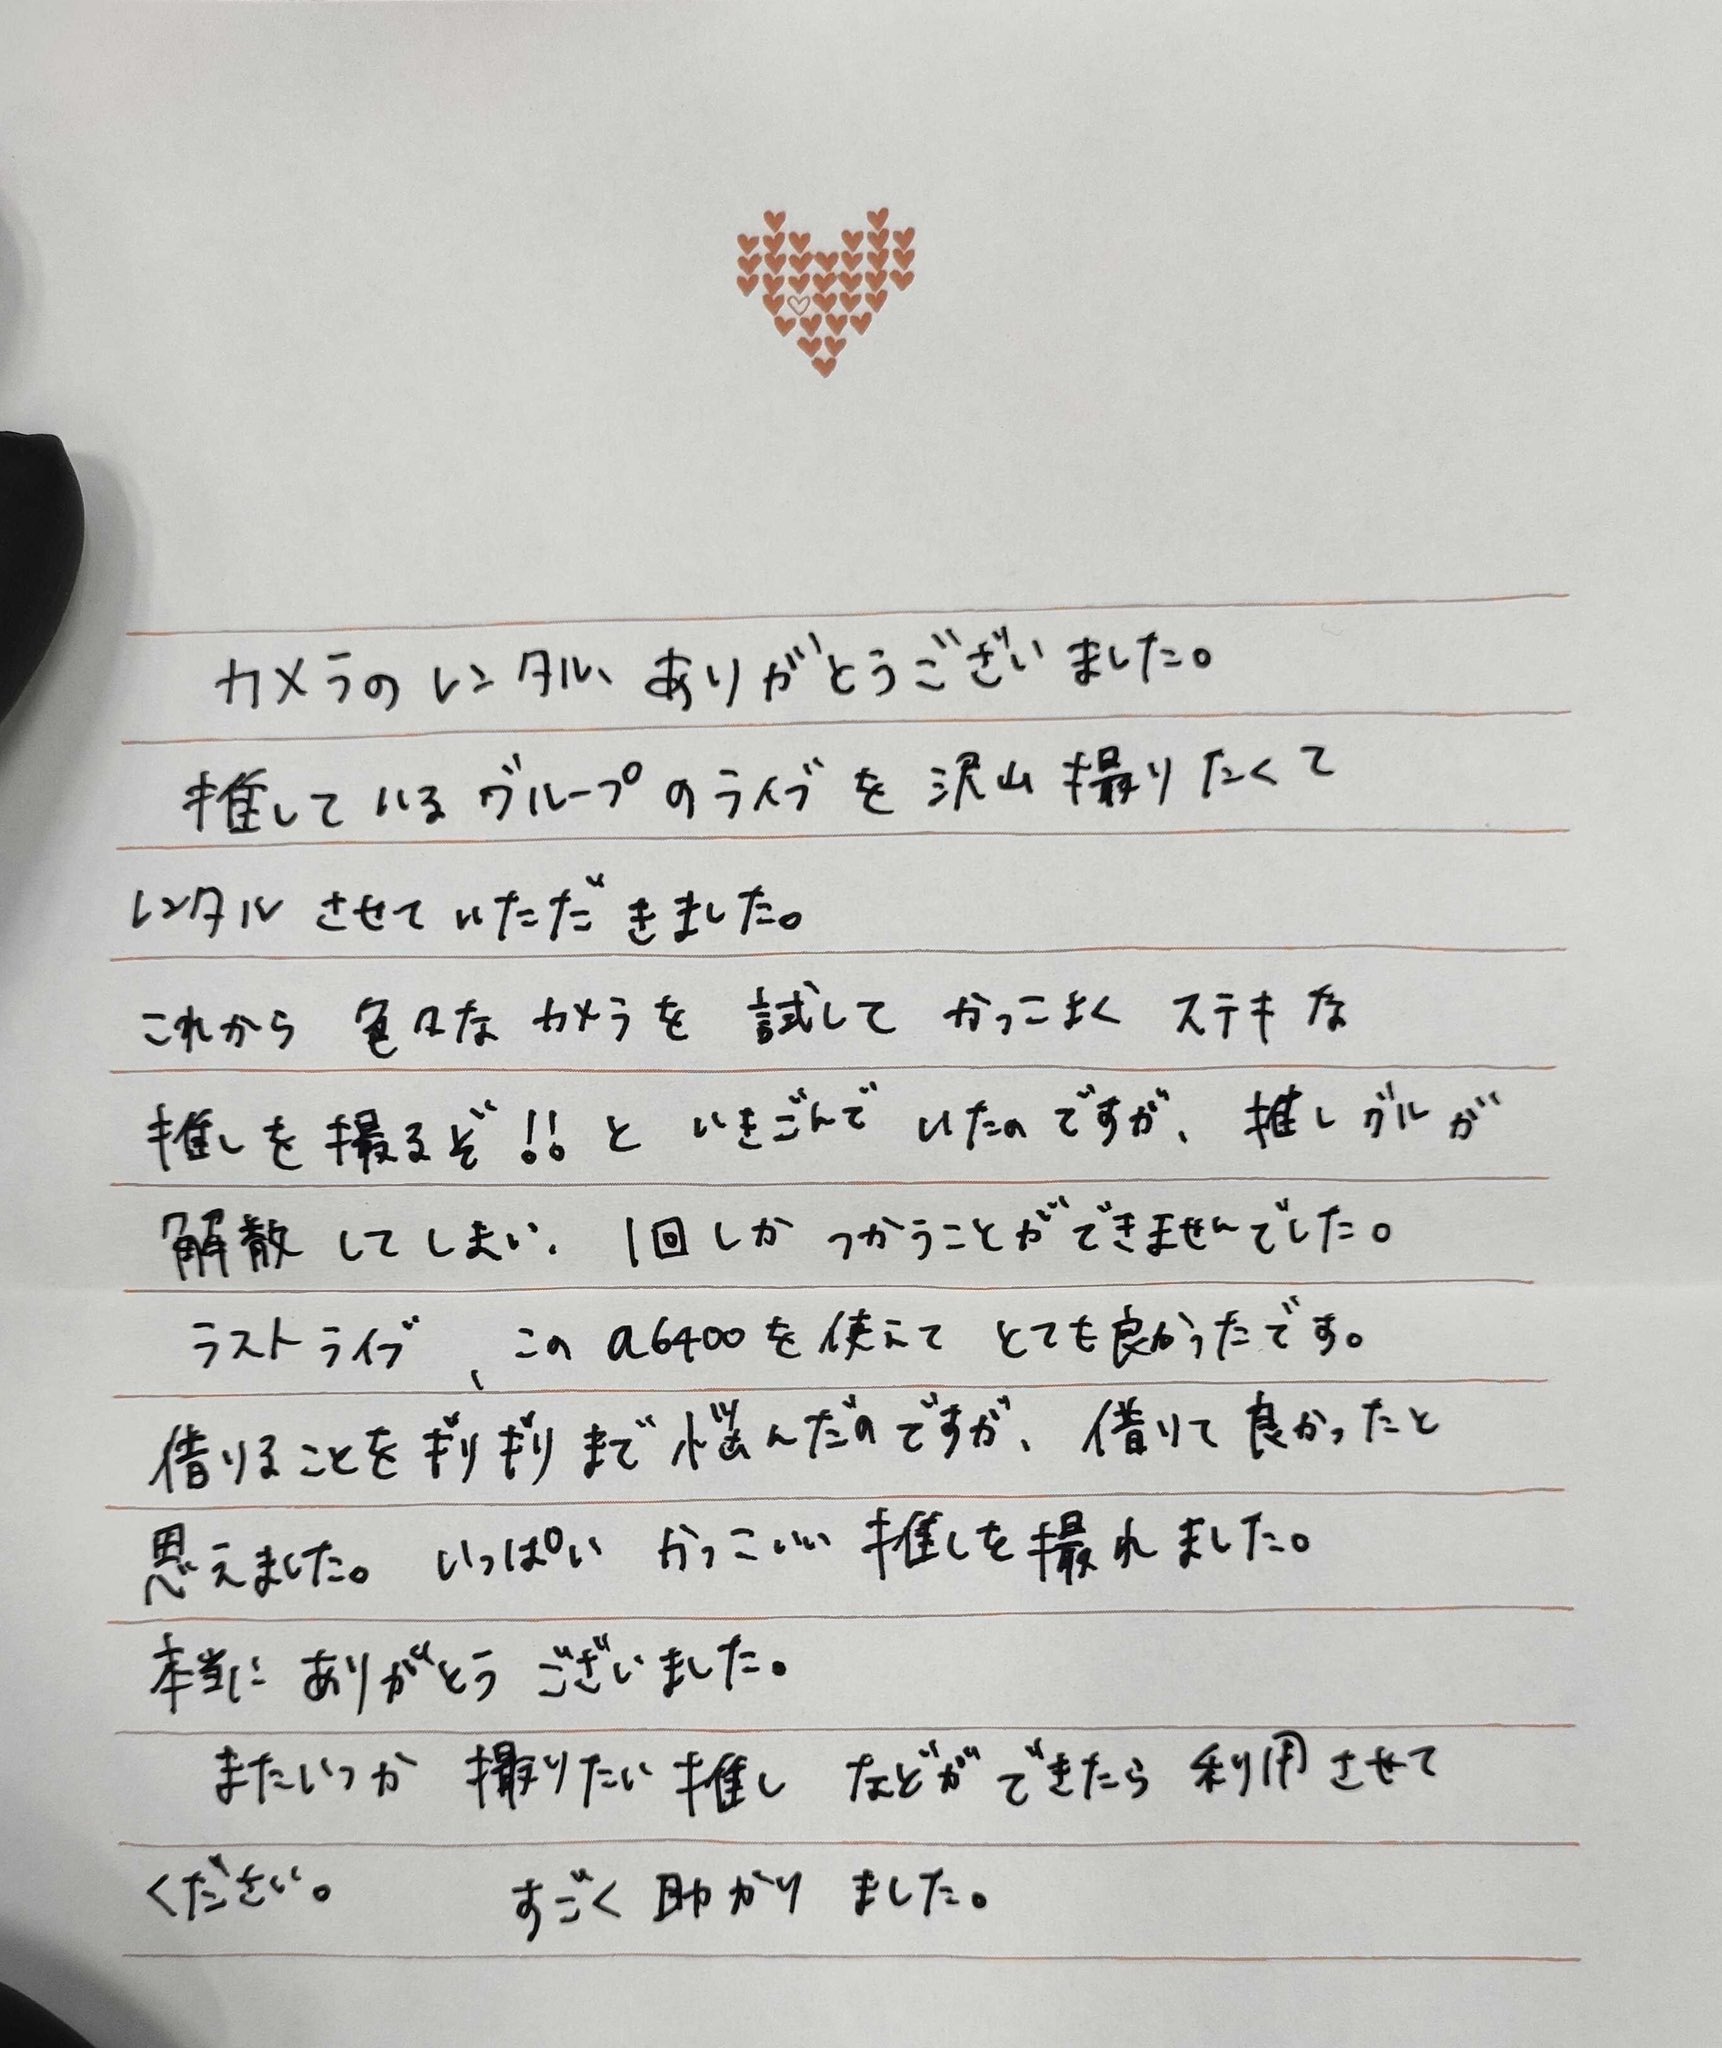 カメラのレンタル、ありがとうございました。
推しているグループのライブを沢山撮りたくて
レンタルさせていただきました。
これから色々なカメラを試してかっこよくステキな
推しを撮るぞ!!といきごんでいたのですが、推しグルが
解散してしまい、1回しかつかうことができませんでした。
ラストライブ、このa6400を使えてとても良かったです。
借りることをギリギリまで悩んだのですが、借りて良かったと
思えました。いっぱいかっこいい推しを撮れました。
本当にありがとうございました。
またいつか撮りたい推しなどができたら利用させて
ください。 すごく助かりました。